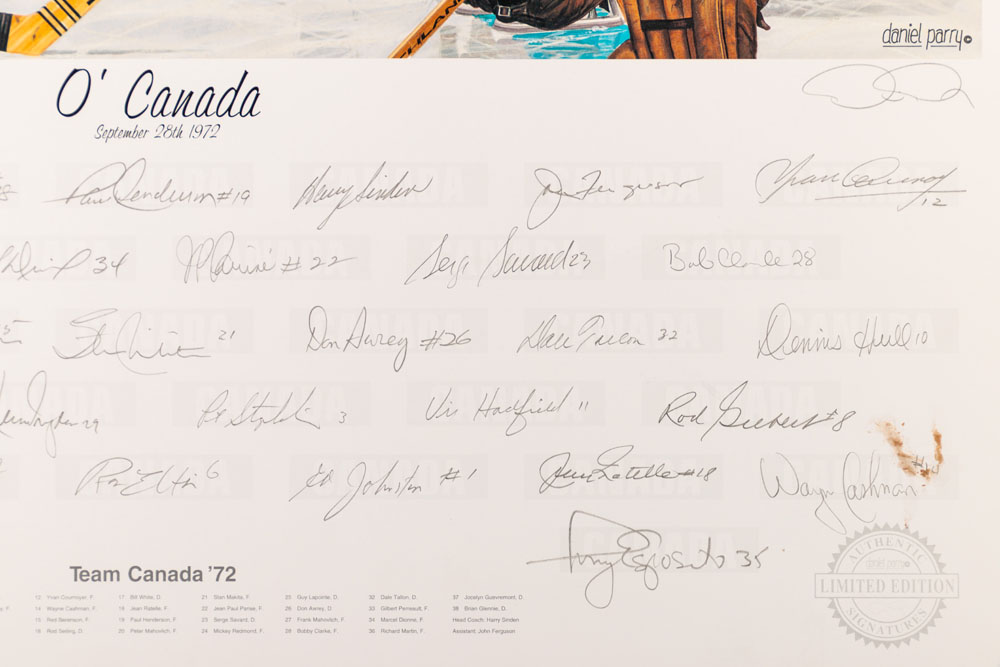 daniel parry
O' Canada
September 28th 1972
Paul Henderson #19 Harry Sinden John Ferguson Yvan Cournoyer 12
34 JP Parisé #22 Serge Savard 23 Bob Clarke 28
Stan Mikita 21 Don Awrey #26 Dale Tallon 32 Dennis Hull 10
29 Pat Stapleton 3 Vic Hadfield 11 Rod Gilbert #8
Ron Ellis 6 Ed Johnston #1 Jean Ratelle #18 Wayne Cashman
Tony Esposito 35
Team Canada '72
12 Yvan Cournoyer, F. 17 Bill White, D. 21 Stan Mikita, F. 25 Guy Lapointe, D. 32 Dale Tallon, D. 37 Jocelyn Guevremont, D.
14 Wayne Cashman, F. 18 Jean Ratelle, F. 22 Jean Paul Parise, F. 26 Don Awrey, D 33 Gilbert Perreault, F. 38 Brian Glennie, D.
15 Red Berenson, F. 19 Paul Henderson, F. 23 Serge Savard, D. 27 Frank Mahovlich, F. 34 Marcel Dionne, F. Head Coach: Harry Sinden
16 Rod Seiling, D. 20 Peter Mahovlich, F. 24 Mickey Redmond, F. 28 Bobby Clarke, F. 36 Richard Martin, F. Assistant: John Ferguson
AUTHENTIC
daniel parry
LIMITED EDITION
SIGNATURES